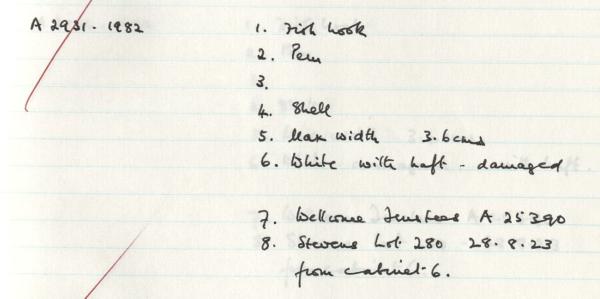 A 2931 · 1982 1. Fish hook
2. Peru
3.
4. Shell
5. Max width 3.6cms
6. White with haft - damaged
7. Wellcome Trustees A 25390
8. Stevens Lot 280 28.8.23
from cabinet 6.